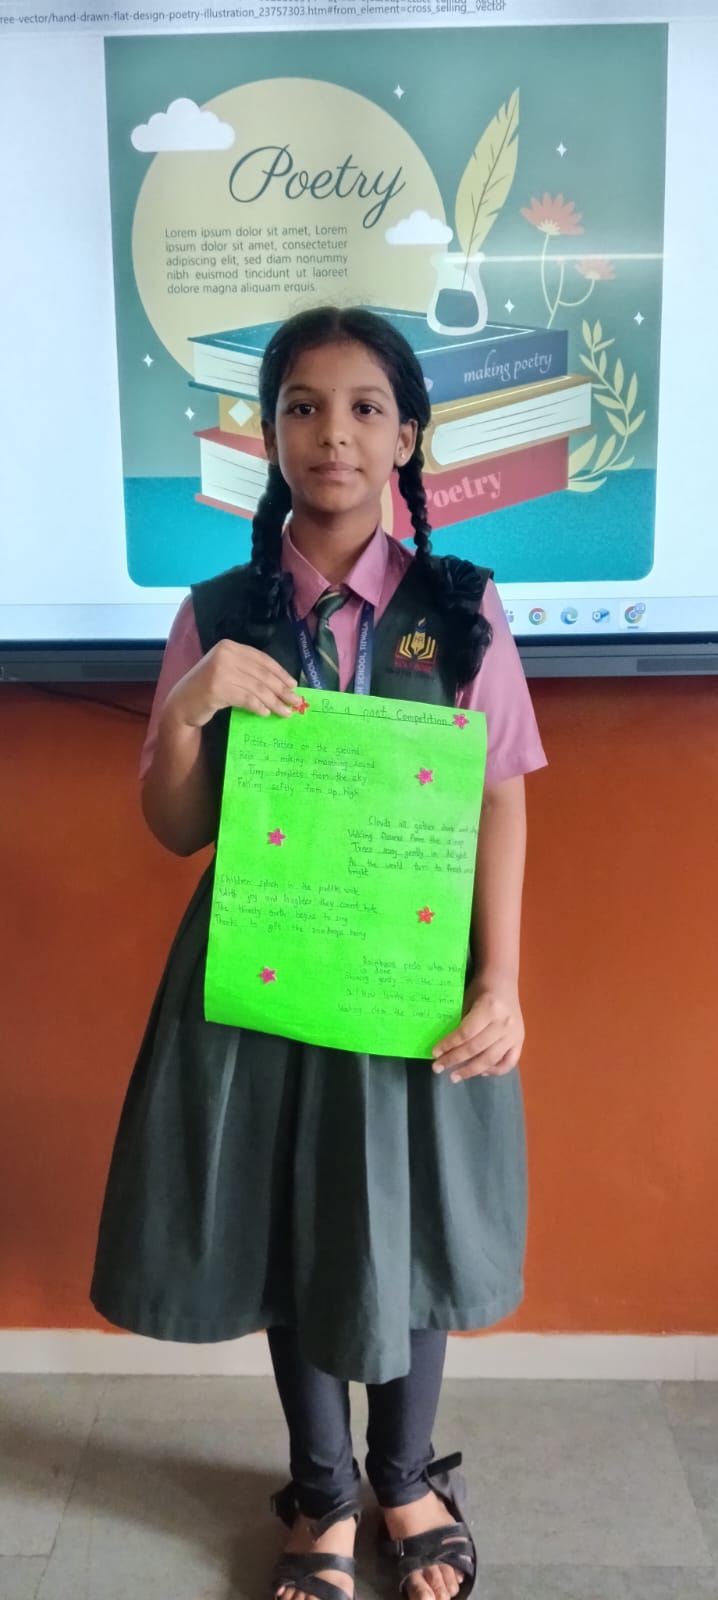 ree-vector/hand-drawn-flat-design-poetry-illustration_23757303.htm#from_element=cross_selling__vector
Poetry
Lorem ipsum dolor sit amet, Lorem
ipsum dolor sit amet, consectetuer
adipiscing elit, sed diam nonummy
nibh euismod tincidunt ut laoreet
dolore magna aliquam erquis.
making poetry
Poetry
SCHOOL, TITWALA
SH SCHOOL, TITWALA
Be a poet Competition
Pitter-Patter on the ground
Rain is making smoothing sound
Tiny droplets from the sky
Falling softly from up high
Clouds all gather dark and
Waking flowers from the sleep
Trees sway gently in delight
As the world turn to fresh and
bright
Children splash in the puddles wide
With joy and laughter they cannot hide
The thirsty earth begins to sing
Thanks to gift the raindrops bring
Rainbows peeks when rain
is done
Shining gently in the sun
O! How lovely is the rain
Washing clean the world again